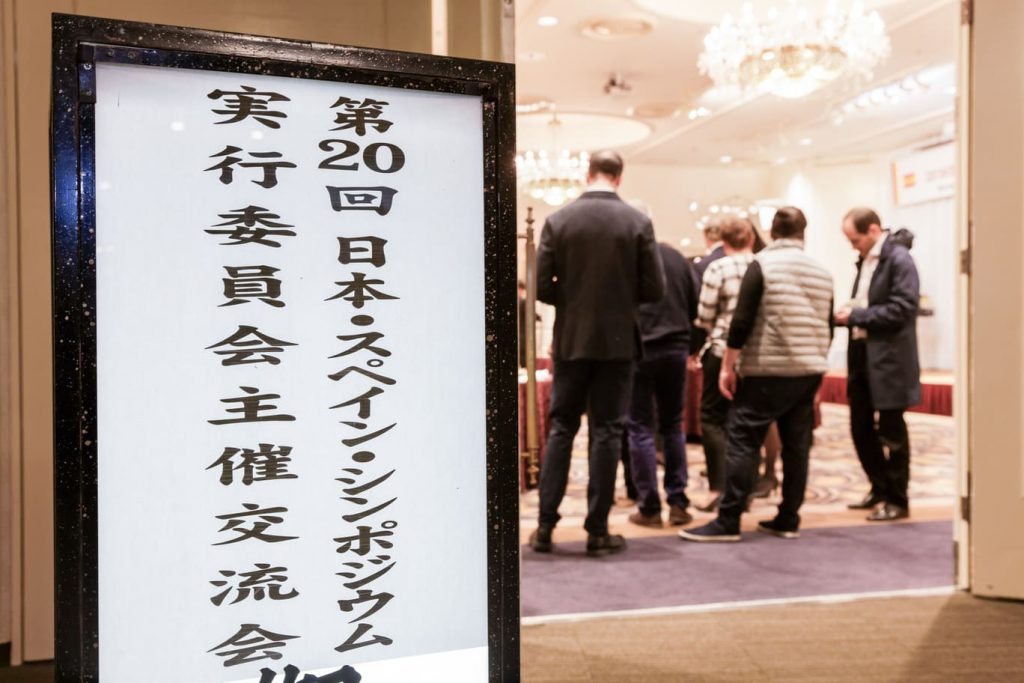 第20回 日本・スペイン・シンポジウム
実行委員会主催交流会